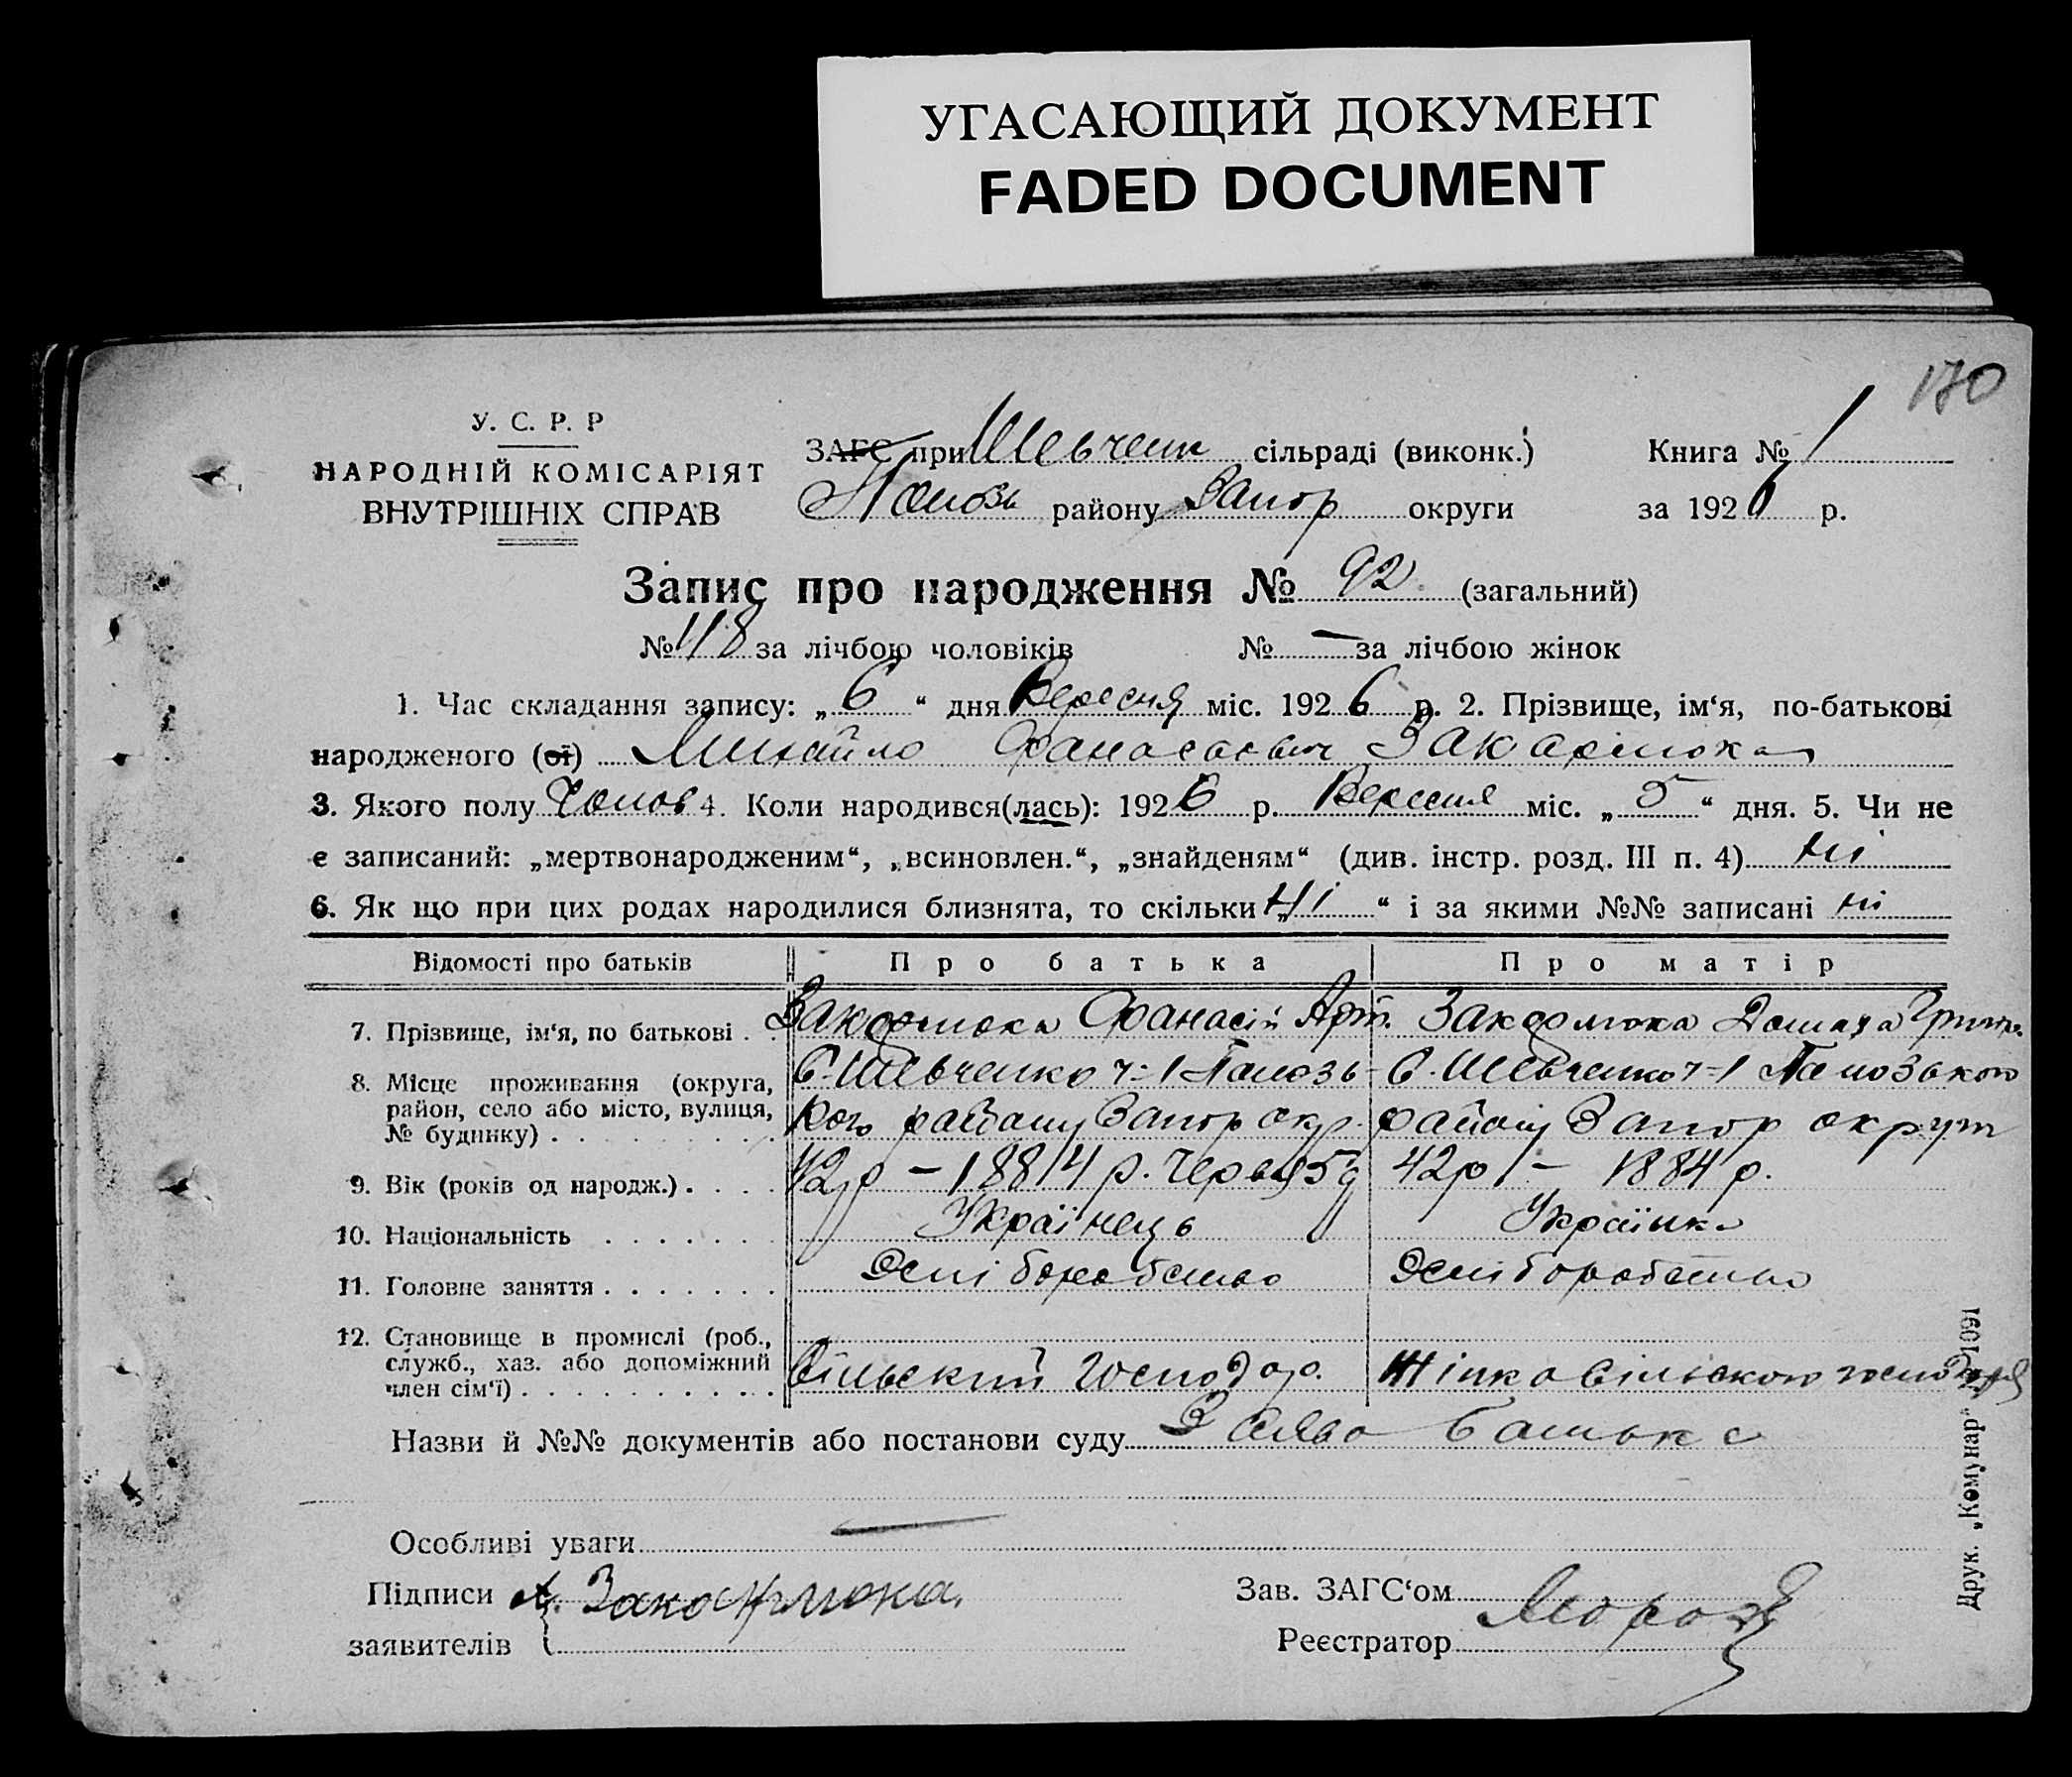 УГАСАЮЩИЙ ДОКУМЕНТ
FADED DOCUMENT
170
У. С. Р. Р
НАРОДНІЙ КОМІСАРІЯТ
ВНУТРІШНІХ СПРАВ
ЗАГС при Шевченк сільраді (виконк.)
Книга № 1
району Запор округи
за 1926 р.
Запис про народження № 92 (загальний)
№ 118 за лічбою чоловіків № — за лічбою жінок
1. Час складання запису: „ 6 “ дня Вересня міс. 1926 р. 2. Прізвище, ім‘я, по-батькові
народженого (ої) Михайло Фанасаєвич
3. Якого полу Чолов 4. Коли народився(лась): 1926 р. Вересня міс. „ 5 “ дня. 5. Чи не
є записаний: „мертвонародженим“, „всиновлен.“, „знайденям“ (див. інстр. розд. III п. 4) ні
6. Як що при цих родах народилися близнята, то скільки „ Ні “ і за якими №№ записані ні
Відомості про батьків Про батька Про матір
7. Прізвище, ім‘я, по батькові . . Фанасій Арт.
8. Місце проживання (округа, С. Шевченко ч=1 С. Шевченко ч=1
район, село або місто, вулиця, кого району Запор окр. району Запор округи
№ будинку)
9. Вік (років од народж.) . . . . 42р – 1884 р. Червня 5д 42р – 1884 р.
10. Національність . . . . . . . Українець Українка
11. Головне заняття . . . . . . . Хліборобство Хліборобство
12. Становище в промислі (роб.,
служб., хаз. або допоміжний Сільский господар. Жінка сільского господаря
член сім‘ї) . . . . . . . . . . .
Назви й №№ документів або постанови суду Заява батька
Особливі уваги —
Підписи А.
заявителів
Зав. ЗАГС‘ом Мороз
Реєстратор
Друк. „Комунар“ 1091